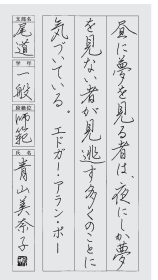 昼に夢を見る者は、夜にしか夢
を見ない者が見逃す多くのことに
気づいている。 エドガー・アラン・ポー
支部名
尾道
学年
一般
段級位
師範
氏名
青山美奈子